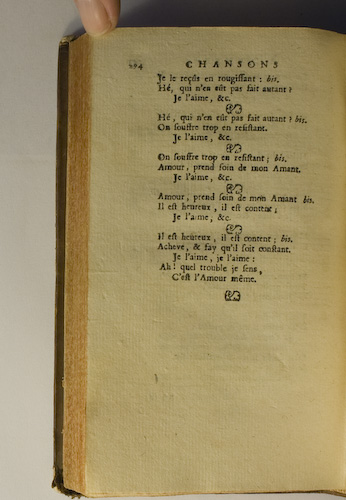 294 CHANSONS
Je le reçûs en rougissant : bis.
Hé, qui n'en eût pas fait autant ?
Je l'aime, &c.
Hé, qui n'en eût pas fait autant ? bis.
On souffre trop en resistant.
Je l'aime, &c.
On souffre trop en resistant ; bis.
Amour, prend soin de mon Amant.
Je l'aime, &c.
Amour, prend soin de mon Amant bis.
Il est heureux, il est content ;
Je l'aime, &c.
Il est heureux, il est content ; bis.
Acheve, & fay qu'il soit constant.
Je l'aime, je l'aime :
Ah ! quel trouble je sens,
C'est l'Amour même.